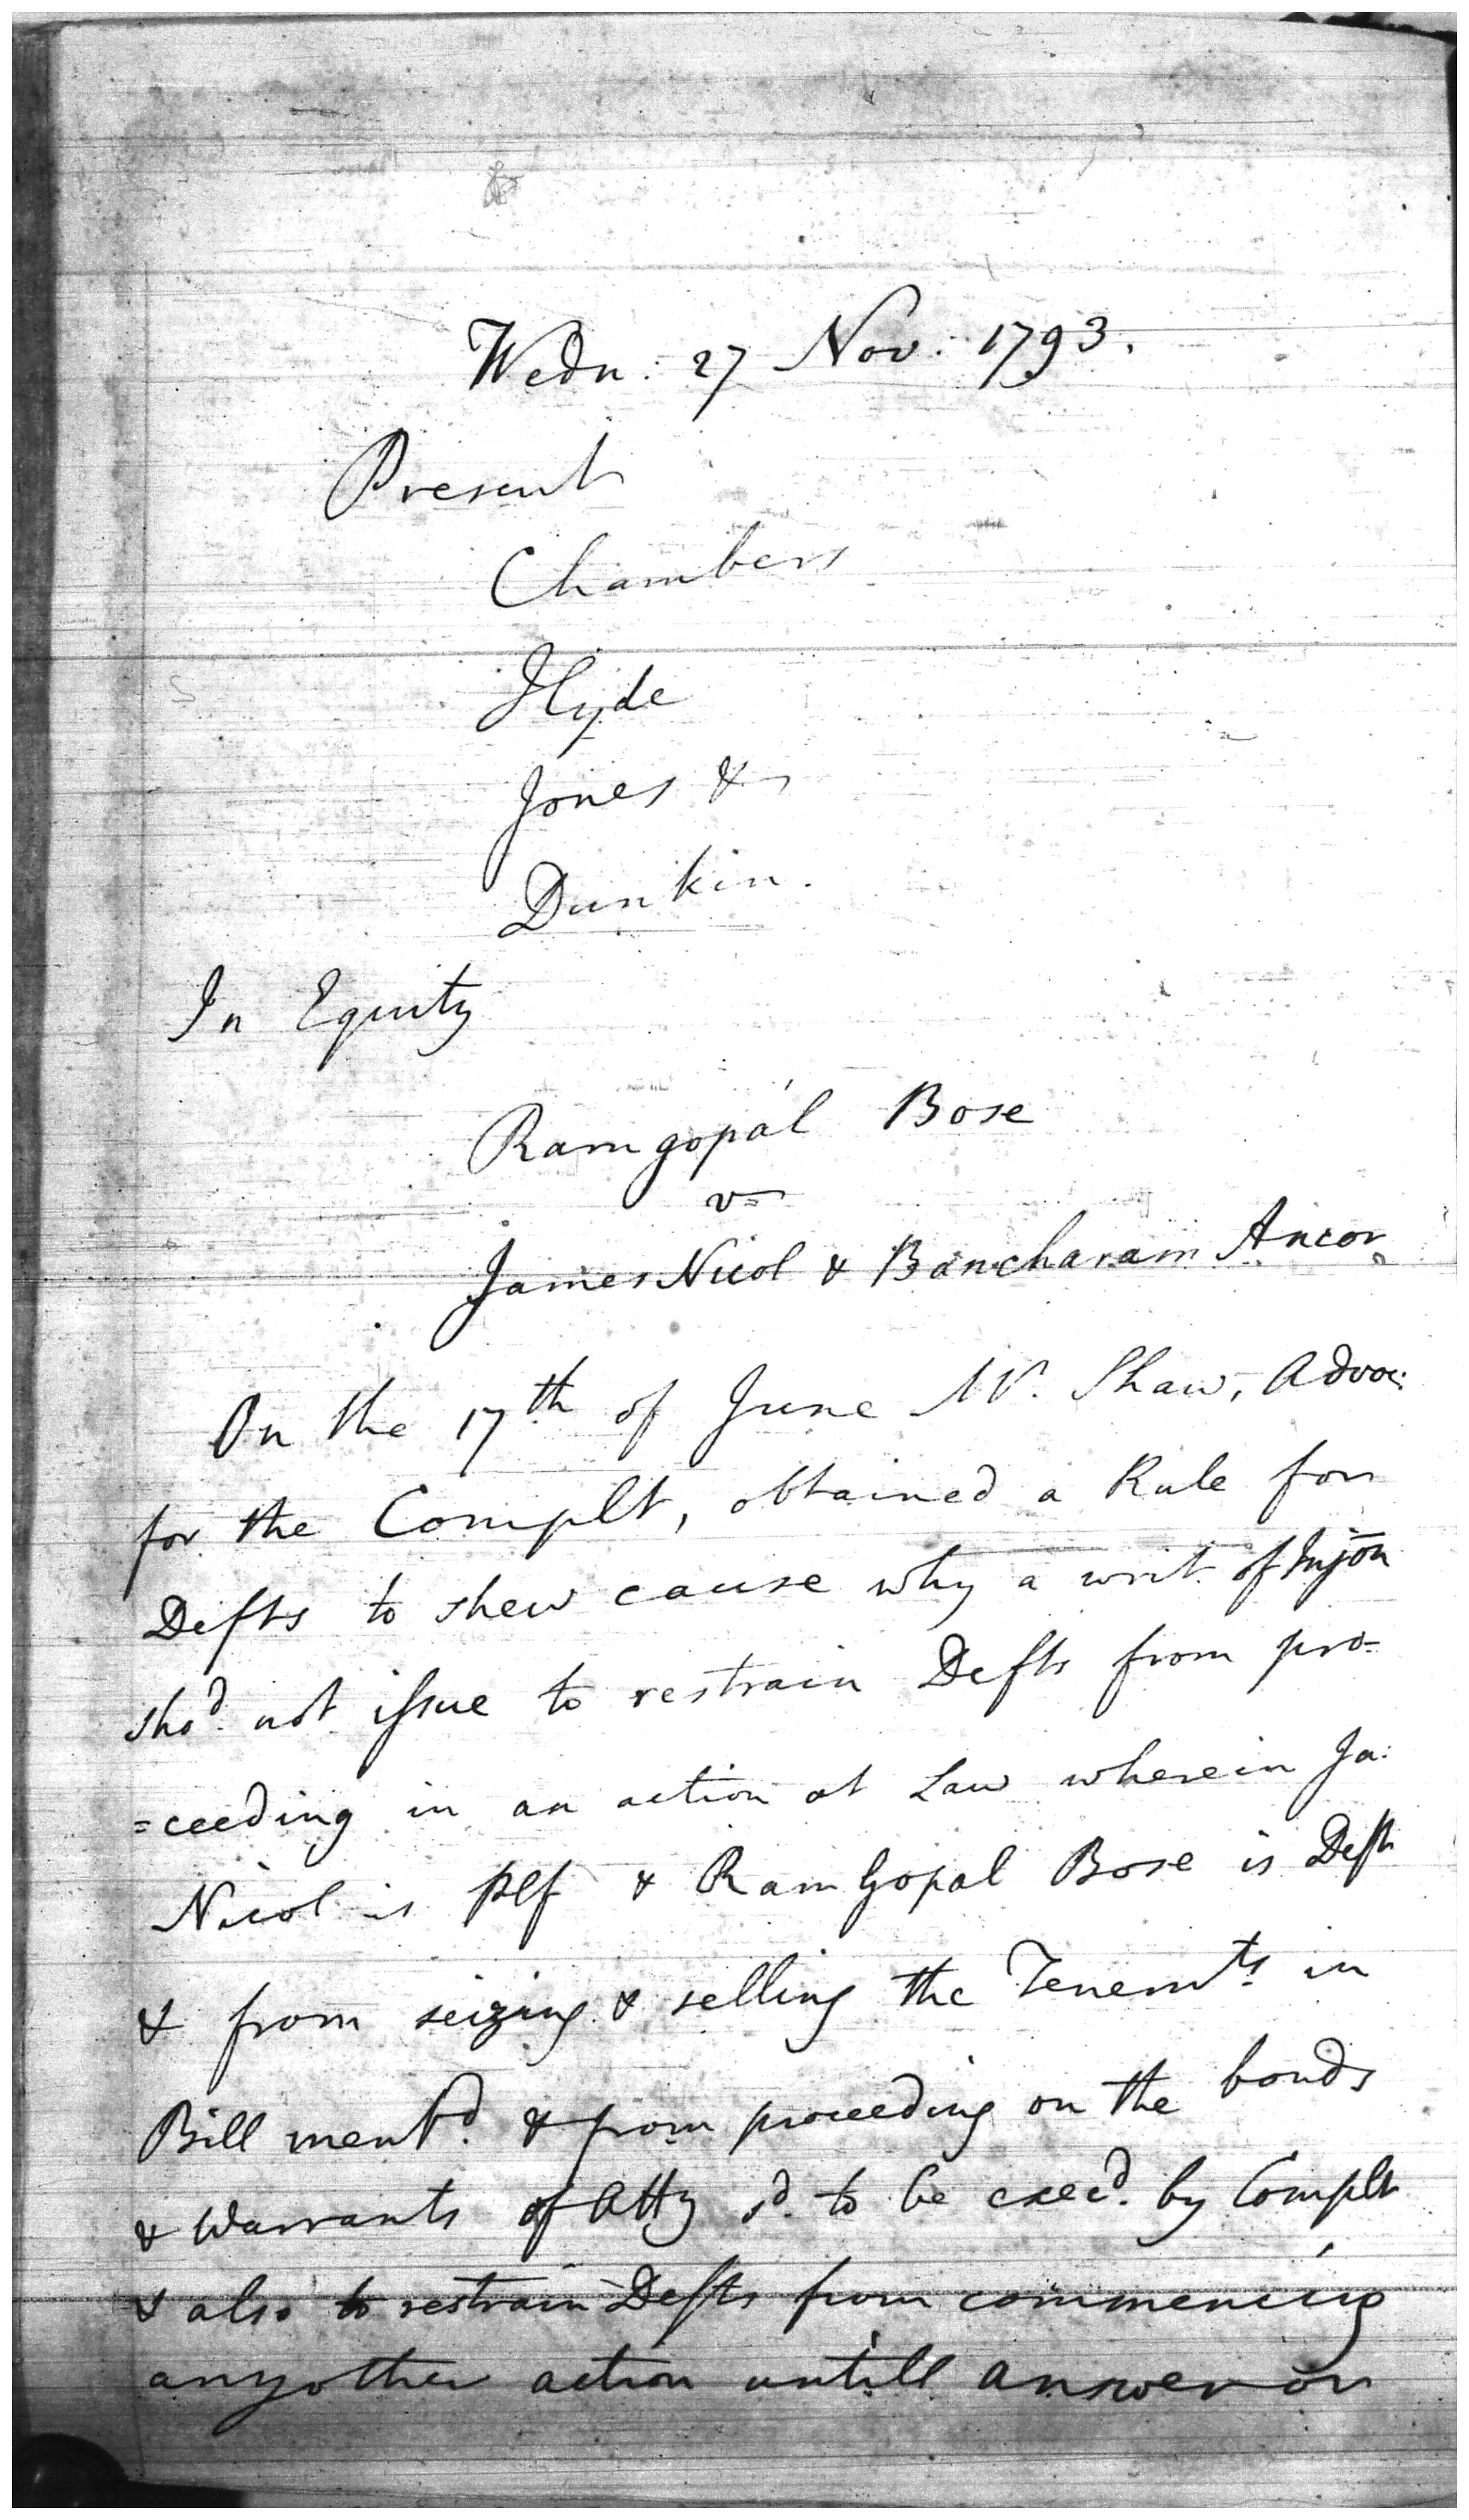 Wedn: 27 Nov: 1793.
Present
Chambers
Hyde
Jones &
Dunkin.
In Equity
Ramgopál Bose
v
James Nicol & Bancharam Ancor
On the 17th of June Mr. Shaw, Advoc:
for the Complt, obtained a Rule for
Defts to shew cause why a writ of Injōn
shod. not issue to restrain Defts from pro=
=ceeding in an action at Law wherein Ja:
Nicol is Plf & Ram Gopal Bose is Deft
& from seizing & selling the Tenemts. in
Bill mentd. & from proceeding on the bonds
& Warrants of Atty sd. to be execd. by Complt
& also to restrain Defts from commencing
any other action untill answer or